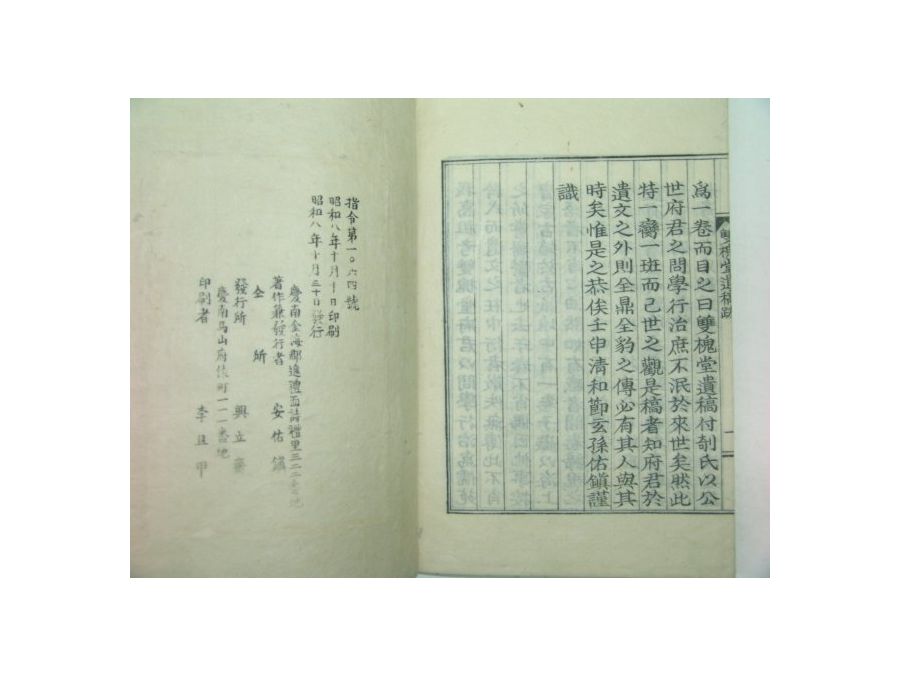 雙槐堂遺稿跋
爲一卷而目之曰雙槐堂遺稿付剞氏以公
世府君之問學行治庶不泯於來世矣然此
特一臠一班而已世之觀是稿者知府君於
遺文之外則全鼎全豹之傳必有其人與其
時矣惟是之恭俟壬申清和節玄孫佑鎭謹
識
指令第一〇六四號
昭和八年十月十日印刷
昭和八年十月二十日發行
慶南金海郡進禮面詩禮里三二二番地
著作兼發行者 安佑鎭
全所
發行所 興立齋
慶南馬山府俵町一一一番地
印刷者 李且甲